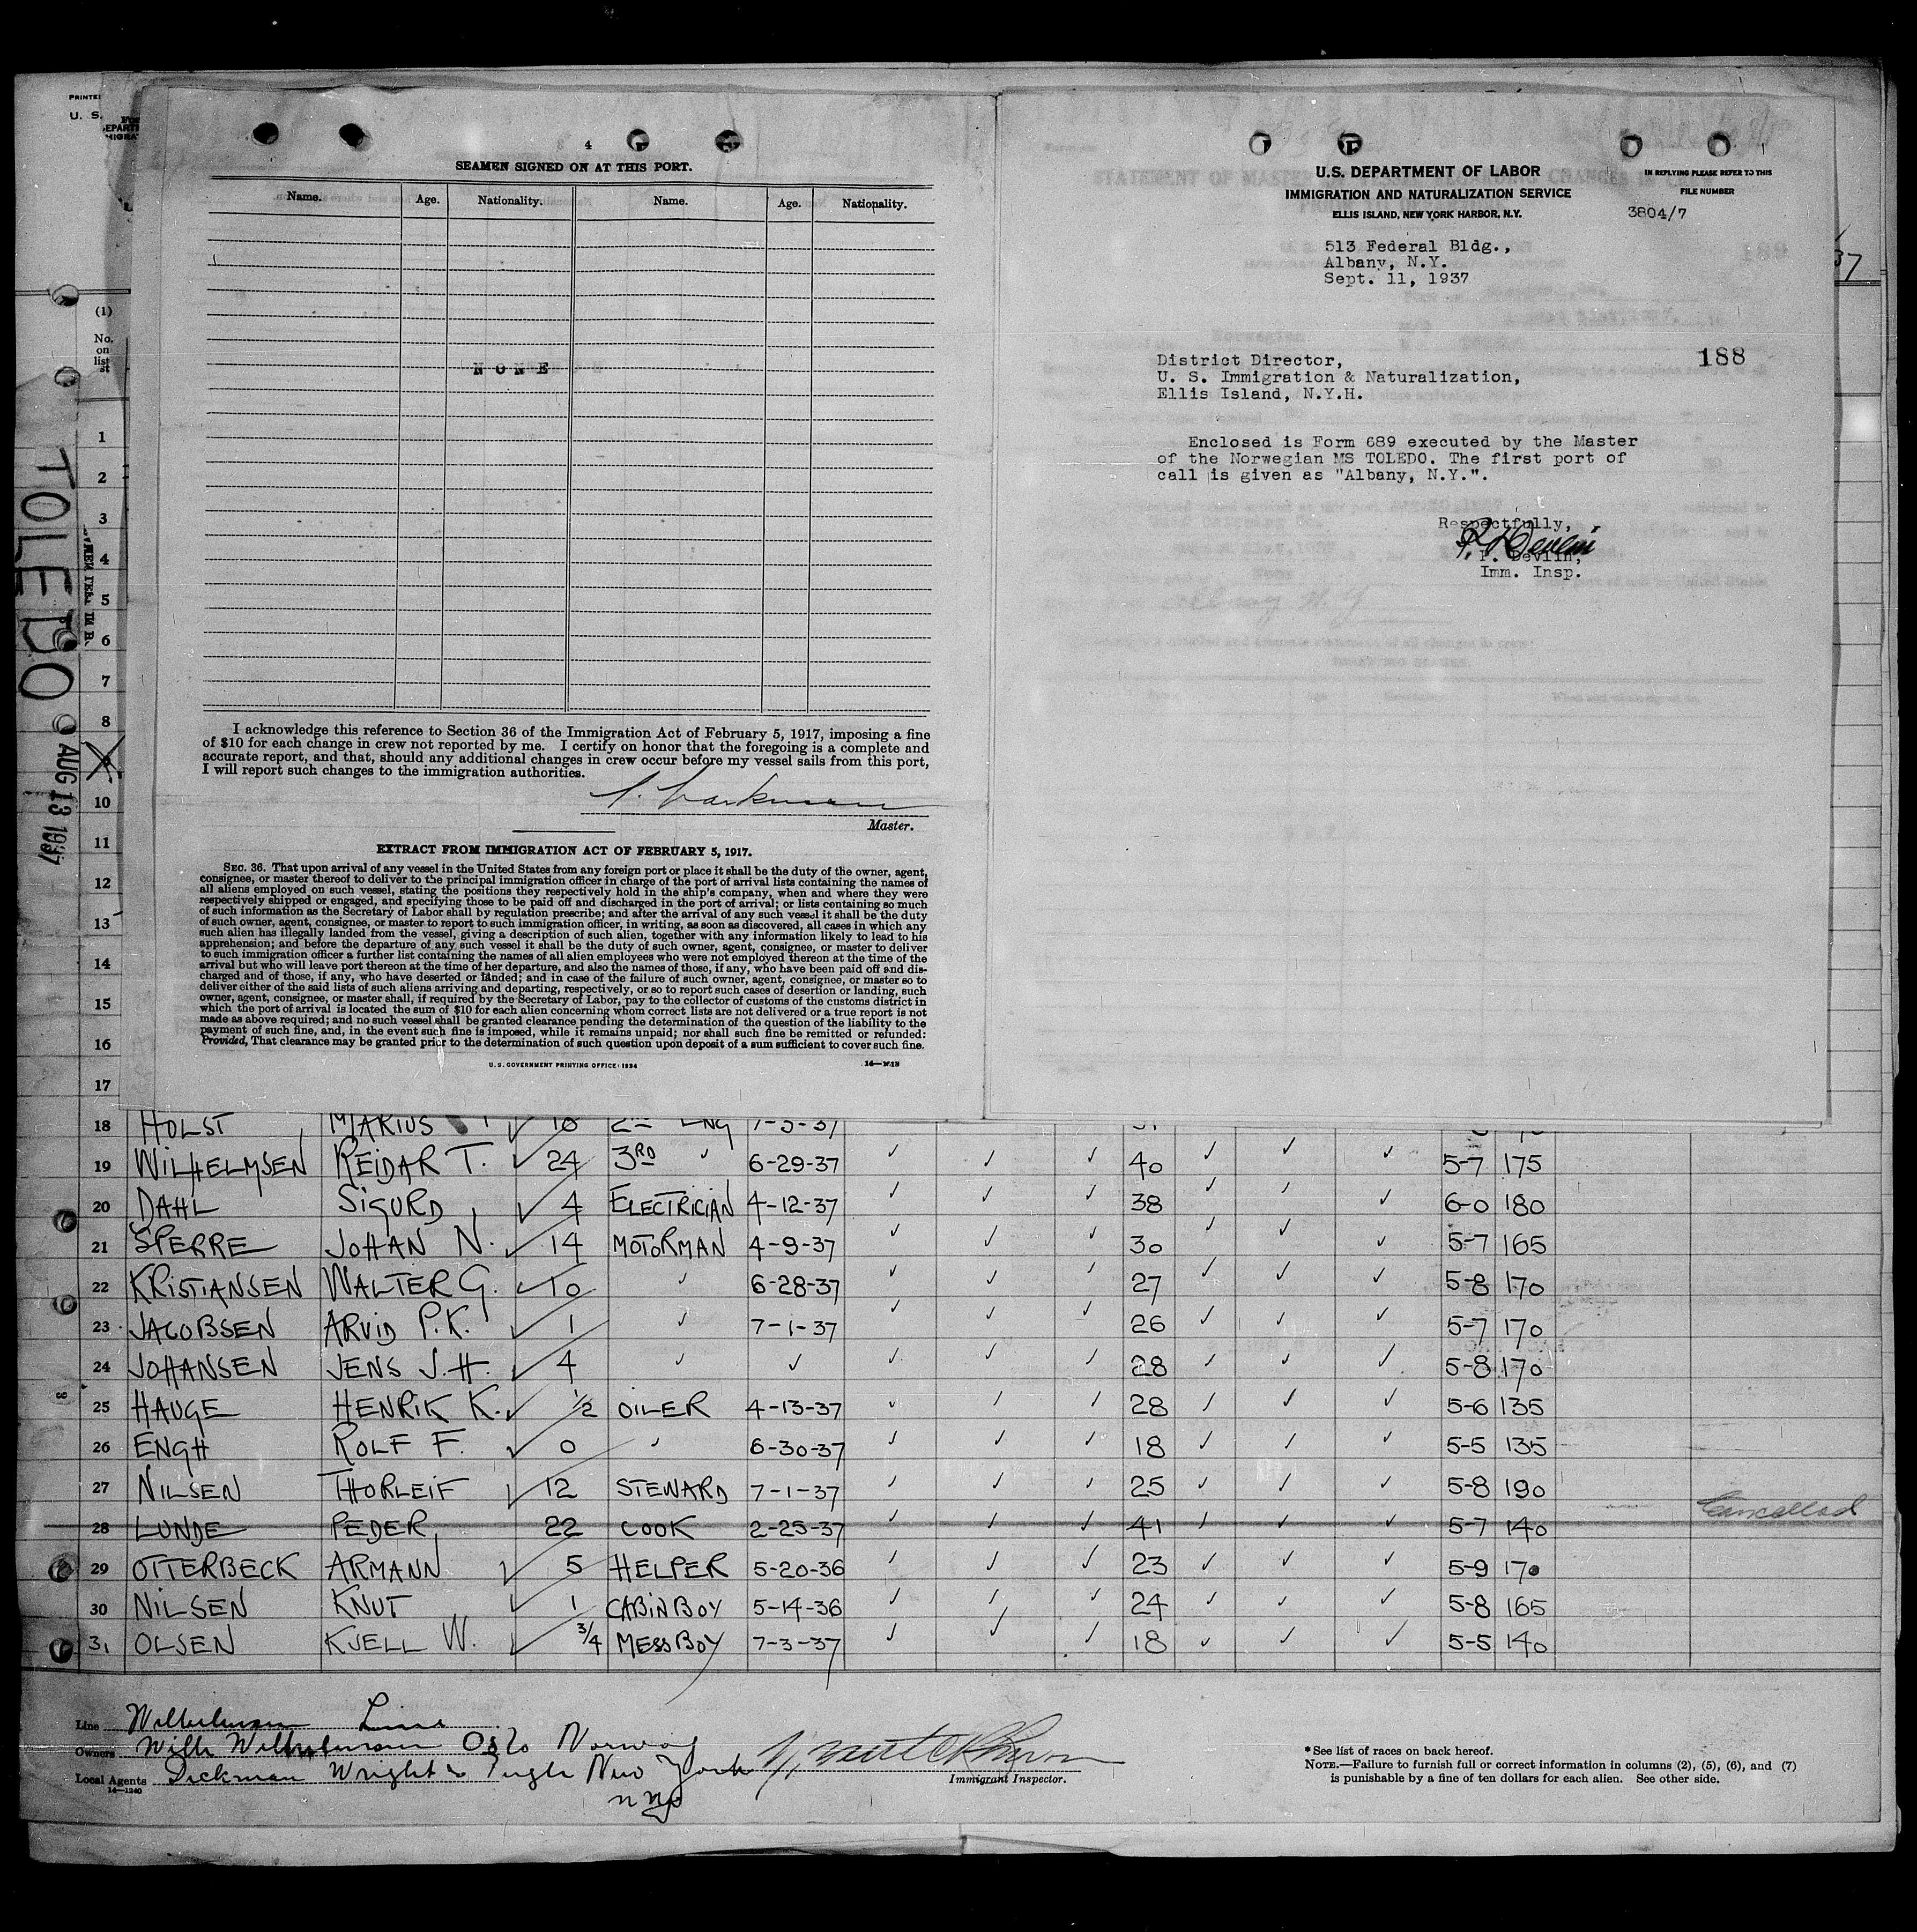 PRINTED
U. S.
TOLEDO
AUG 13 1937
(1)
No.
on
list
4
SEAMEN SIGNED ON AT THIS PORT.
Name. Age. Nationality. Name. Age. Nationality.
NONE
I acknowledge this reference to Section 36 of the Immigration Act of February 5, 1917, imposing a fine
of $10 for each change in crew not reported by me. I certify on honor that the foregoing is a complete and
accurate report, and that, should any additional changes in crew occur before my vessel sails from this port,
I will report such changes to the immigration authorities.
Master.
EXTRACT FROM IMMIGRATION ACT OF FEBRUARY 5, 1917.
SEC. 36. That upon arrival of any vessel in the United States from any foreign port or place it shall be the duty of the owner, agent,
consignee, or master thereof to deliver to the principal immigration officer in charge of the port of arrival lists containing the names of
all aliens employed on such vessel, stating the positions they respectively hold in the ship's company, when and where they were
respectively shipped or engaged, and specifying those to be paid off and discharged in the port of arrival; or lists containing so much
of such information as the Secretary of Labor shall by regulation prescribe; and after the arrival of any such vessel it shall be the duty
of such owner, agent, consignee, or master to report to such immigration officer, in writing, as soon as discovered, all cases in which any
such alien has illegally landed from the vessel, giving a description of such alien, together with any information likely to lead to his
apprehension; and before the departure of any such vessel it shall be the duty of such owner, agent, consignee, or master to deliver
to such immigration officer a further list containing the names of all alien employees who were not employed thereon at the time of the
arrival but who will leave port thereon at the time of her departure, and also the names of those, if any, who have been paid off and dis-
charged and of those, if any, who have deserted or landed; and in case of the failure of such owner, agent, consignee, or master so to
deliver either of the said lists of such aliens arriving and departing, respectively, or so to report such cases of desertion or landing, such
owner, agent, consignee, or master shall, if required by the Secretary of Labor, pay to the collector of customs of the customs district in
which the port of arrival is located the sum of $10 for each alien concerning whom correct lists are not delivered or a true report is not
made as above required; and no such vessel shall be granted clearance pending the determination of the question of the liability to the
payment of such fine, and, in the event such fine is imposed, while it remains unpaid; nor shall such fine be remitted or refunded:
Provided, That clearance may be granted prior to the determination of such question upon deposit of a sum sufficient to cover such fine.
U. S. GOVERNMENT PRINTING OFFICE: 1934
U.S. DEPARTMENT OF LABOR
IMMIGRATION AND NATURALIZATION SERVICE
ELLIS ISLAND, NEW YORK HARBOR, N.Y.
IN REPLYING PLEASE REFER TO THIS
FILE NUMBER
3804/7
513 Federal Bldg.,
Albany, N.Y.
Sept. 11, 1937
188
District Director,
U. S. Immigration & Naturalization,
Ellis Island, N.Y.H.
Enclosed is Form 689 executed by the Master
of the Norwegian MS TOLEDO. The first port of
call is given as "Albany, N.Y.".
Respectfully,
P. Devlin,
Imm. Insp.
37
1
2
3
4
5
6
7
8
10
11
12
13
14
15
16
17
18 HOLST MARIUS ✓ 2ND ENG 7-5-37
19 WILHELMSEN REIDAR T. ✓ 24 3RD ✓ 6-29-37 ✓ ✓ ✓ 40 ✓ ✓ ✓ 5-7 175
20 DAHL SIGURD ✓ 4 ELECTRICIAN 4-12-37 ✓ ✓ ✓ 38 ✓ ✓ ✓ 6-0 180
21 SPERRE JOHAN N. ✓ 14 MOTORMAN 4-9-37 ✓ ✓ ✓ 30 ✓ ✓ ✓ 5-7 165
22 KRISTIANSEN WALTER G. ✓ 10 ✓ 6-28-37 ✓ ✓ ✓ 27 ✓ ✓ ✓ 5-8 170
23 JACOBSEN ARVID P.K. ✓ 1 ✓ 7-1-37 ✓ ✓ ✓ 26 ✓ ✓ ✓ 5-7 170
24 JOHANSEN JENS J.H. ✓ 4 ✓ ✓ ✓ ✓ ✓ 28 ✓ ✓ ✓ 5-8 170
25 HAUGE HENRIK K. ✓ 1/2 OILER 4-13-37 ✓ ✓ ✓ 28 ✓ ✓ ✓ 5-6 135
26 ENGH ROLF F. ✓ 0 ✓ 6-30-37 ✓ ✓ ✓ 18 ✓ ✓ ✓ 5-5 135
27 NILSEN THORLEIF ✓ 12 STEWARD 7-1-37 ✓ ✓ ✓ 25 ✓ ✓ ✓ 5-8 190
28 LUNDE PEDER 22 COOK 2-25-37 ✓ ✓ ✓ 41 ✓ ✓ ✓ 5-7 140 Cancelled
29 OTTERBECK ARMANN ✓ 5 HELPER 5-20-36 ✓ ✓ ✓ 23 ✓ ✓ ✓ 5-9 170
30 NILSEN KNUT ✓ 1 CABIN BOY 5-14-36 ✓ ✓ ✓ 24 ✓ ✓ ✓ 5-8 165
31 OLSEN KJELL W. ✓ 3/4 MESS BOY 7-3-37 ✓ ✓ ✓ 18 ✓ ✓ ✓ 5-5 140
Line Wilhelmsen Line
Owners Wilh Wilhelmsen Oslo Norway
Local Agents Dickman Wright & Pugh New York
14-1240
Immigrant Inspector.
* See list of races on back hereof.
NOTE.—Failure to furnish full or correct information in columns (2), (5), (6), and (7)
is punishable by a fine of ten dollars for each alien. See other side.